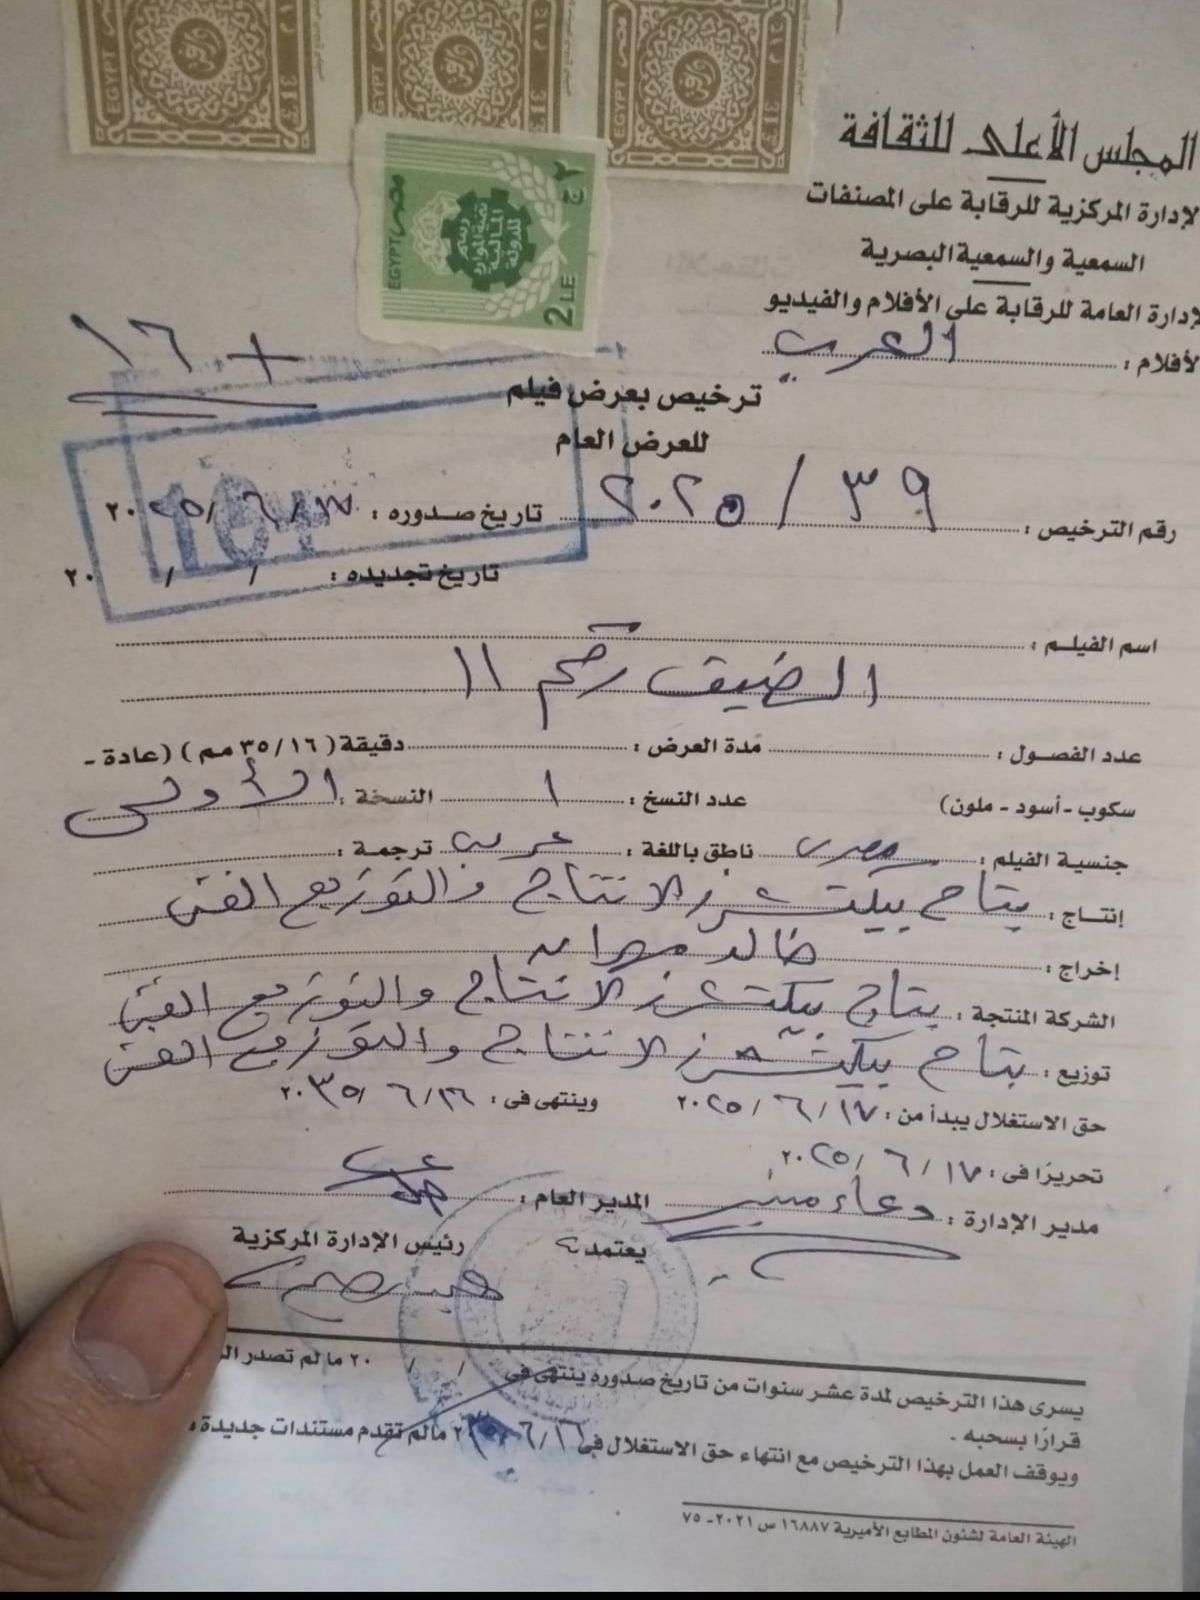 EGYPT مصر
EGYPT مصر
EGYPT مصر
EGYPT مصر
رسم
تنمية الموارد
المالية
للدولة
٢ ج
2 LE
المجلس الأعلى للثقافة
لإدارة المركزية للرقابة على المصنفات
السمعية والسمعية البصرية
لإدارة العامة للرقابة على الأفلام والفيديو
لأفلام : العربية
+ ١٦
ترخيص بعرض فيلم
للعرض العام
رقم الترخيص : ٣٩ / ٢٠٢٥ تاريخ صدوره : ١٧ / ٦ / ٢٠٢٥
104
تاريخ تجديده : / / ٢٠
اسم الفيلم :
الضيف رقم ١١
عدد الفصول : مدة العرض : دقيقة ( ٣٥/١٦ مم ) (عادة -
سكوب - أسود - ملون) عدد النسخ : ١ النسخة : الأولى
جنسية الفيلم : مصرى ناطق باللغة : عربى ترجمة :
إنتاج : بتاح بيكتشرز للانتاج والتوزيع الفنى
إخراج : خالد مهران
الشركة المنتجة : بتاح بيكتشرز للانتاج والتوزيع الفنى
توزيع : بتاح بيكتشرز للانتاج والتوزيع الفنى
حق الاستغلال يبدأ من : ١٧ / ٦ / ٢٠٢٥ وينتهى فى : ١٦ / ٦ / ٢٠٣٥
تحريرًا فى : ١٧ / ٦ / ٢٠٢٥
مدير الإدارة : دعاء منير المدير العام :
يعتمد رئيس الإدارة المركزية
يسرى هذا الترخيص لمدة عشر سنوات من تاريخ صدوره ينتهى فى / / ٢٠ ما لم تصدر
قرارًا بسحبه .
ويوقف العمل بهذا الترخيص مع انتهاء حق الاستغلال فى ١٦ / ٦ / ما لم تقدم مستندات جديدة
الهيئة العامة لشئون المطابع الأميرية ١٦٨٨٧ س ٢٠٢١ - ٧٥